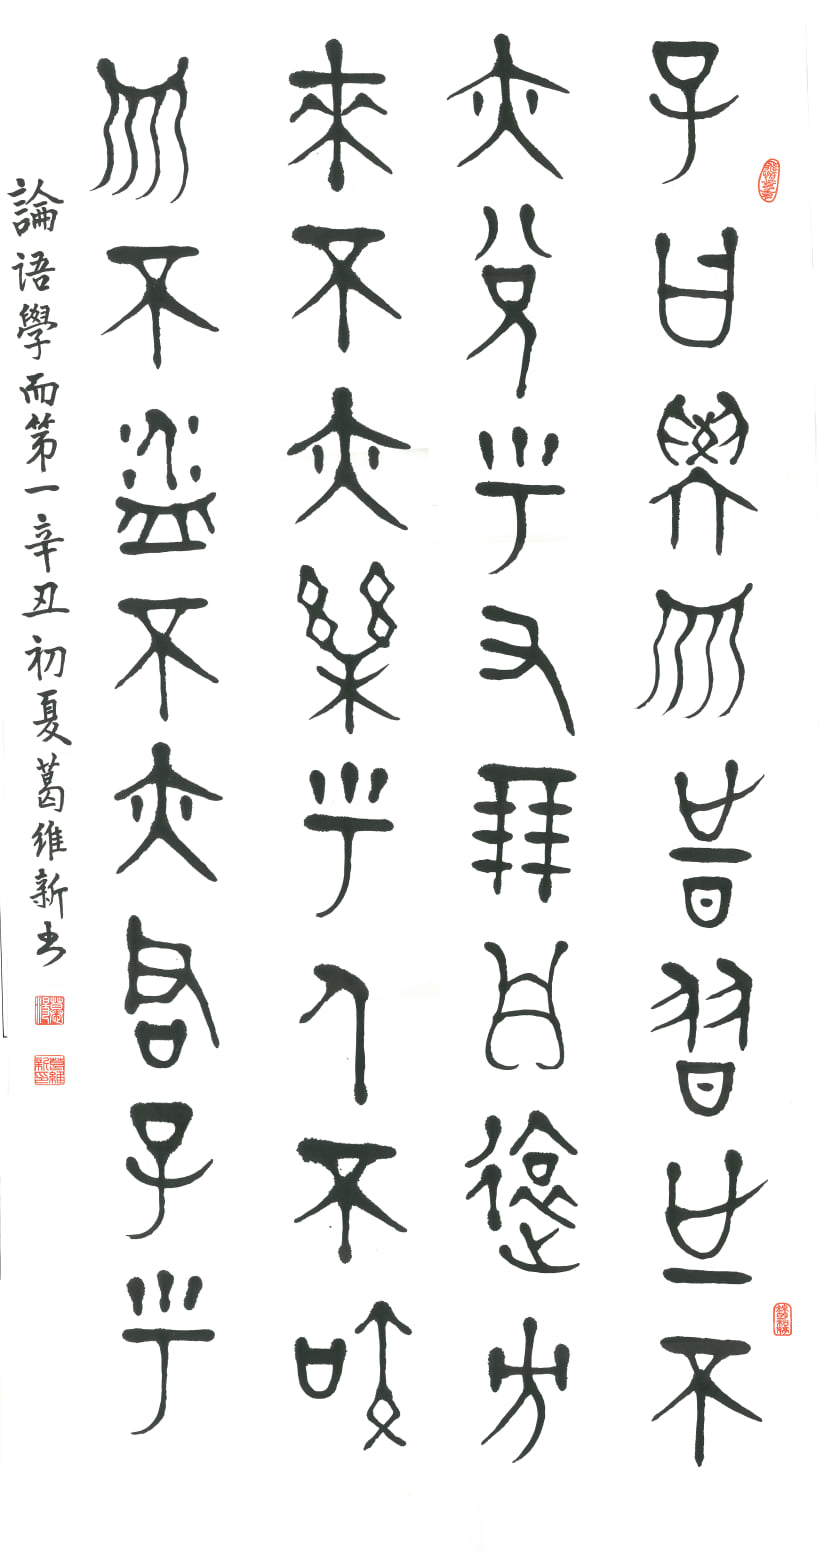 子曰學而時習之不
亦說乎有朋自遠方
來不亦樂乎人不知
而不慍不亦君子乎
論语學而第一辛丑初夏葛維新书